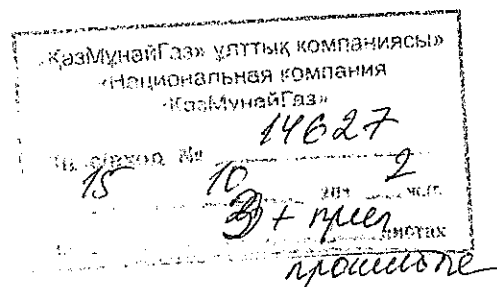 «ҚазМұнайГаз» ұлттық компаниясы»
«Национальная компания
«КазМунайГаз»
вход № 14627
15 10 201 2
3 + прил листах
прошитые